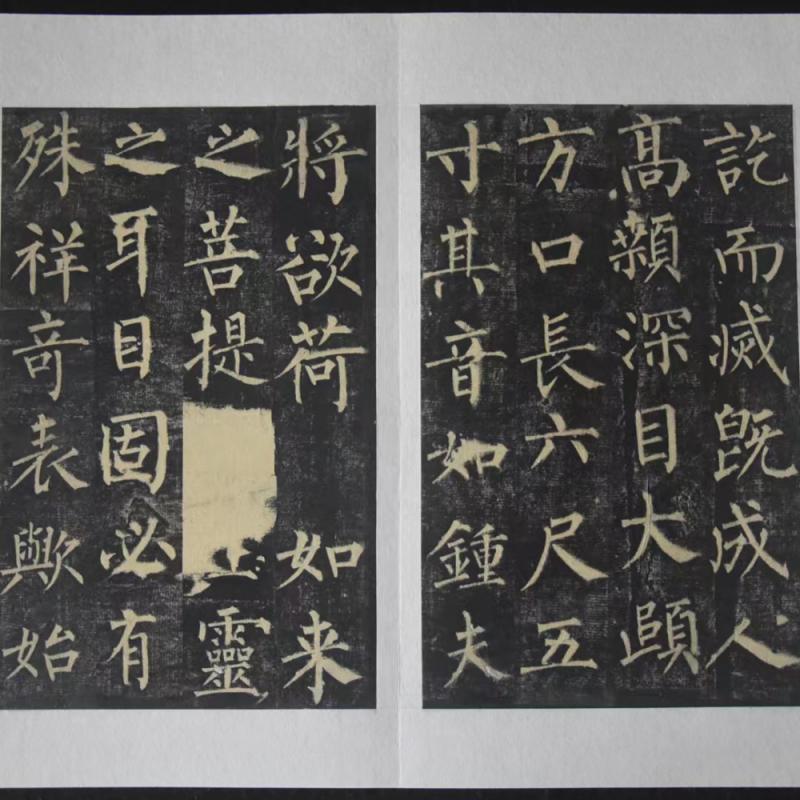 訖而滅旣成人
髙顙深目大頤
方口長六尺五
寸其音如鍾夫
將欲荷如来
之菩提靈
之耳目固必有
殊祥竒表歟始